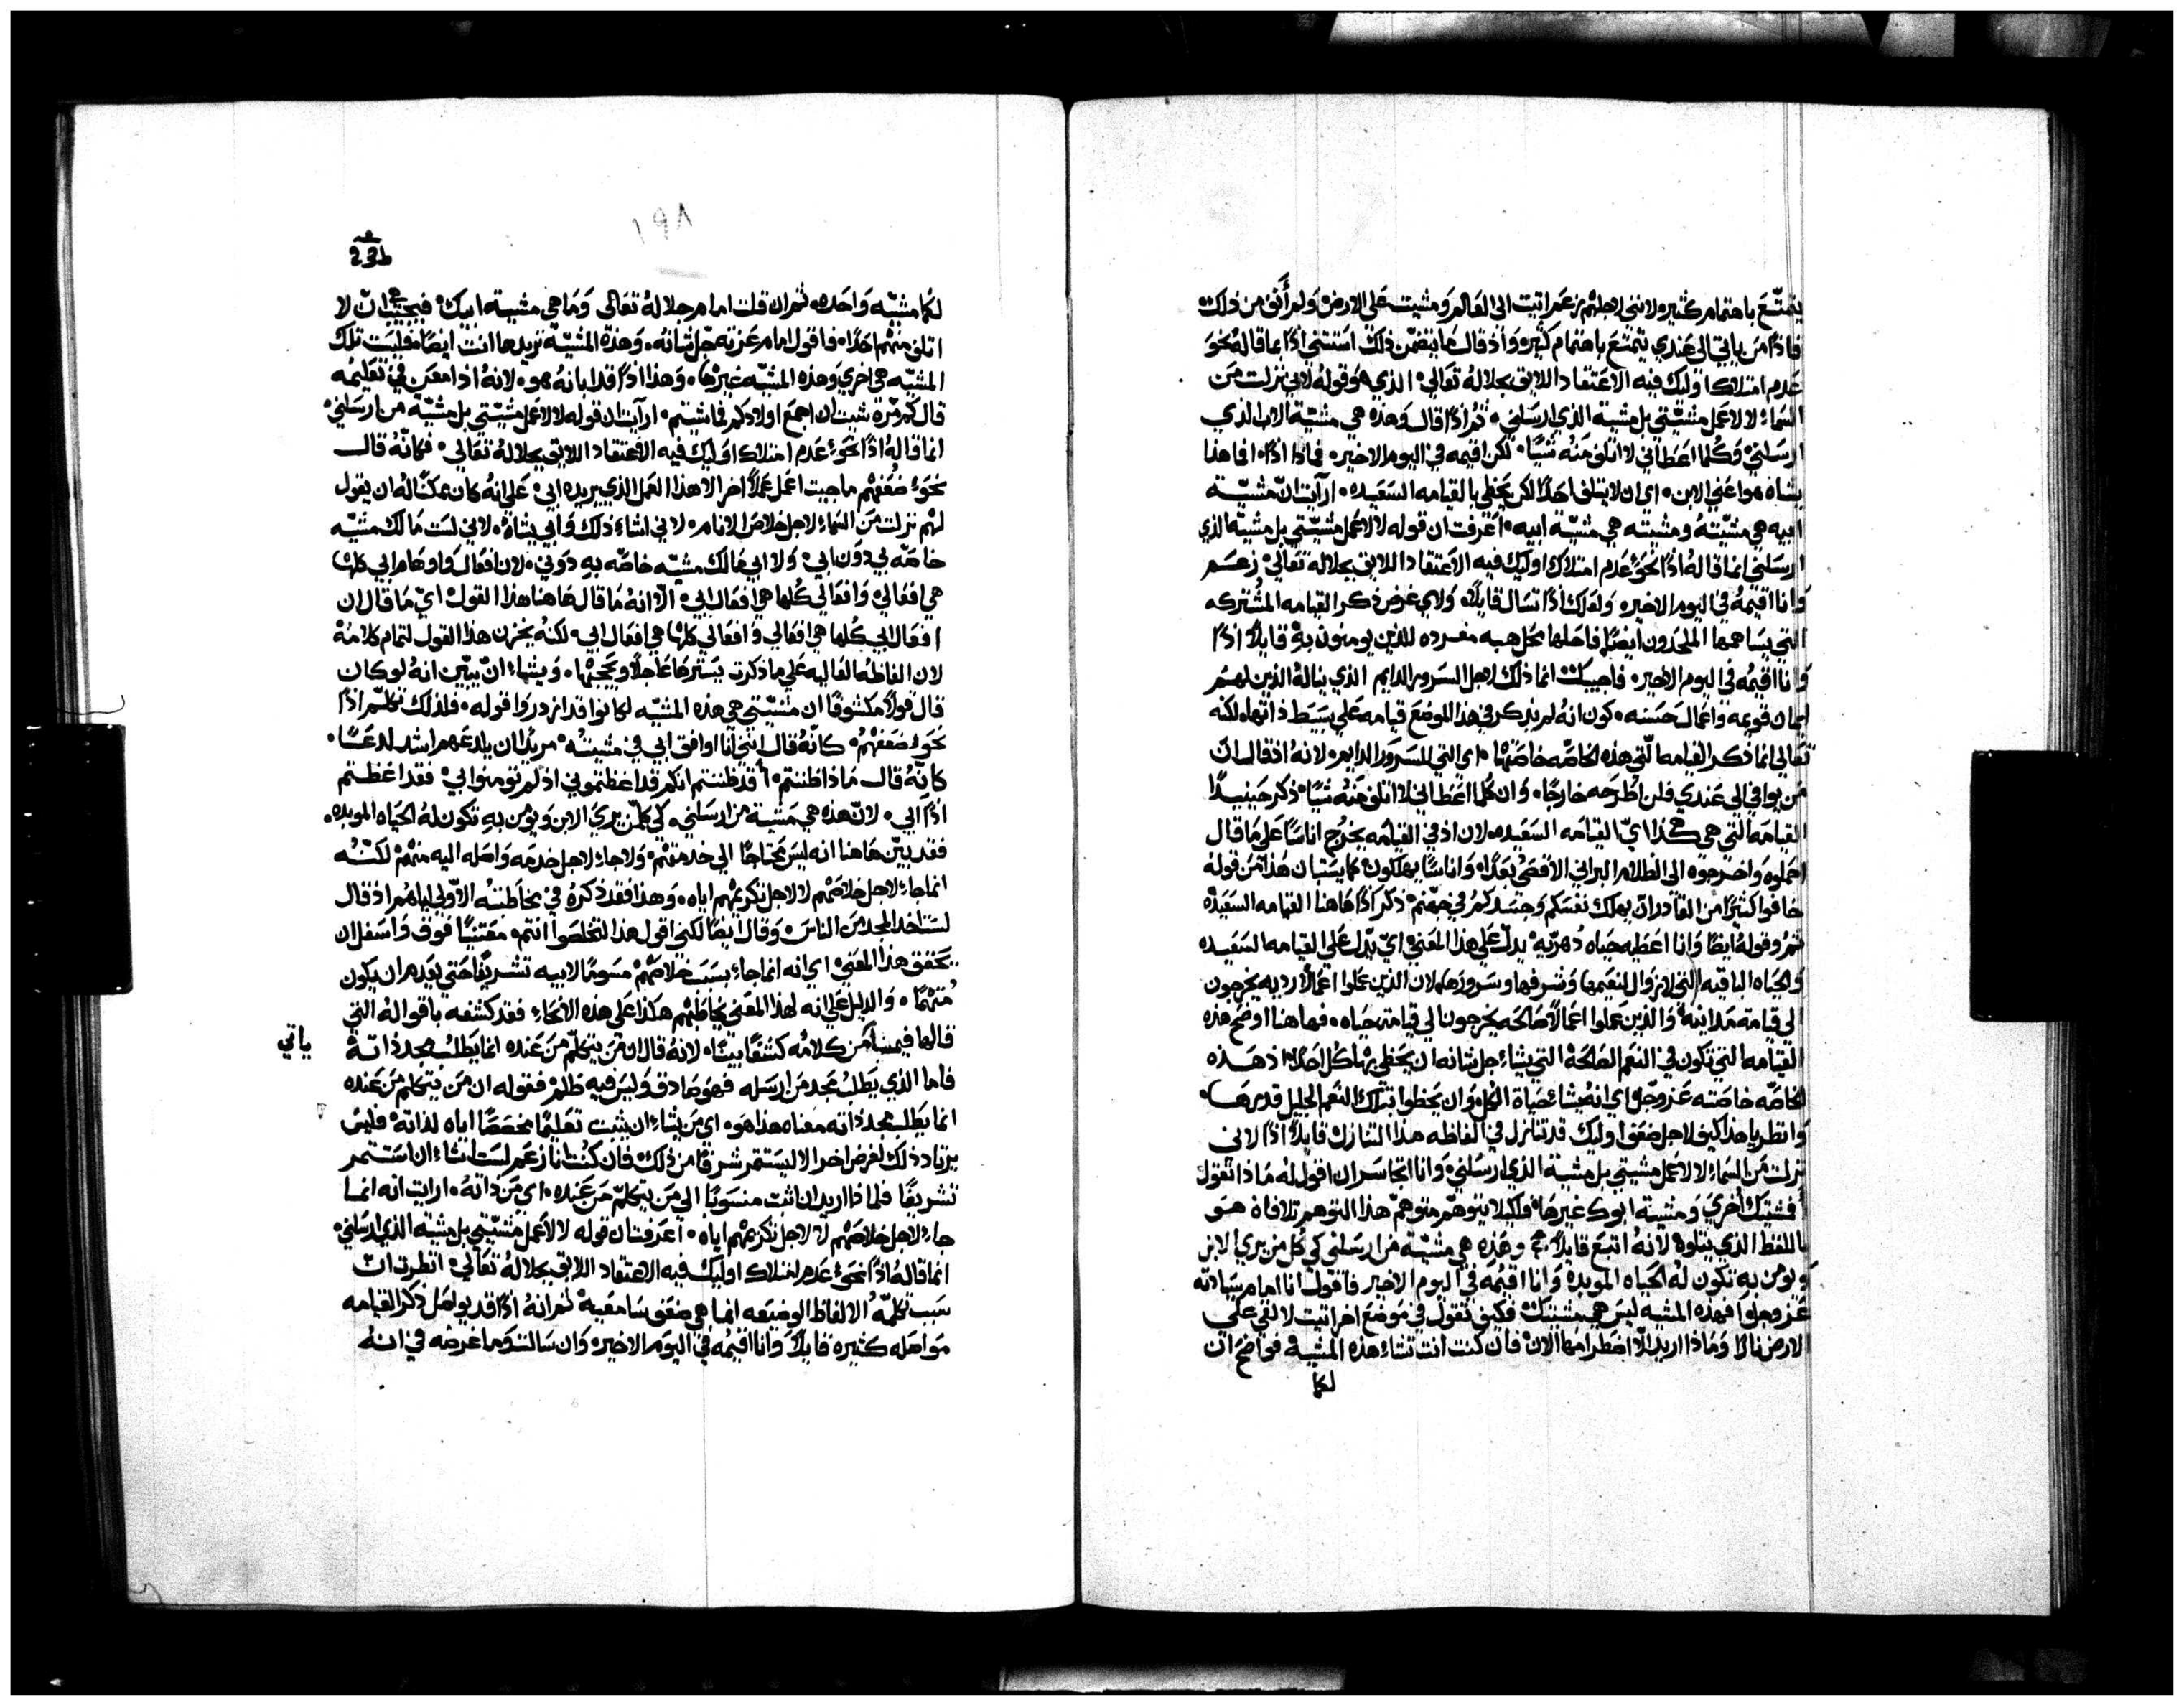 يتمتّع باهتمام كثير ولانني لاجلهم زعم اتيت الى العالم ومشيت على الارض ولم أنف من ذلك
فاذًا من ياتي الى عندي يتمتع باهتمام كثيره واذ قال ما يتضمّن ذلك استثنى اذًا بما قاله نحو
عدم امتلاك اوليك فيه الاعتقاد اللايق بجلاله تعالى الذي هو قوله لاني نزلت من
السماء لا لاعمل مشيّتي بل مشيّة الذي ارسلني ثم اذًا قال وهذه هي مشيّة الاب الذي
ارسلني وكلما اعطاني لا اتلف منه شيًا لكن اقيمه في اليوم الاخير فماذا اذًا افما هذا
يشاه هو اعني الابن اي ان لا يتلف احدًا لكن يحظى بالقيامه السعيده ارآيت انّ مشيّة
ابيه هي مشيّته ومشيته هي مشيّة ابيه اعرفت ان قوله لا لاعمل مشيّتي بل مشيّة الذي
ارسلني انما قاله اذًا نحو عدم امتلاك اوليك فيه الاعتقاد اللايق بجلاله تعالى زعم
وانا اقيمه في اليوم الاخير ولعلك اذًا تسال قايلاً ولاي غرض ذكر القيامه المشتركه
التي يساهمها الملحدون ايضًا فاحلها محل هبه مفرده للذين يومنون به قايلاً اذًا
وانا اقيمه في اليوم الاخير فاجيبك انما ذلك لاجل السرور الدايم الذي يناله الذين لهم
ايمان قويمه واعمال حسنه كون انه لم يذكر في هذا الموضع قيامه على بسيط ذاتها لكنه
تعالى انما ذكر القيامه التي هذه الخاصّه خاصتها اي التي للسرور الدايم لانه اذ قال انّ
من يوافي الى عندي فلن اطرحه خارجًا وان كلما اعطاني لا اتلف منه شيًا ذكر حينيدًا
القيامه التي هي هكذا ايّ القيامه السعيده لان اذ في القيامه يخرج اناسًا على ما قال
احملوه واخرجوه الى الظلام البراني الاقصى بعدًا واناسًا يهلكون كما يستبان هذا من قوله
خافوا كثيرًا من القادر ان يهلك نفسكم وجسدكم في جهنم ذكر اذًا هاهنا القيامه السعيده
ثم وقوله ايضًا وانا اعطيه حياه دهريّه يدلّ على هذا المعنى ايّ يدل على القيامه السعيده
والحياه الباقيه التي لا زوال لنعيمها وشرفها وسرورها لان الذين عملوا اعمالاً رديه يخرجون
الى قيامة مداينة والذين عملوا اعمالاً صالحه يخرجون الى قيامة حياه فهاهنا اوضح هذه
القيامه التي تكون في النعم الصالحة التي يشاء جل شانه ان يحظى بها كل احد اذ هذه
الخاصّه خاصته عز وجل اي انه يشاء حياة الكل وان يحظوا بتلك النعم الجليل قدرها
وانظر يا هذا كيف لاجل ضعف اوليك قد تنازل في الفاظه هذا التنازل قايلاً اذًا لاني
نزلت من السماء لا لاعمل مشيتي بل مشية الذي ارسلني وانا اتجاسر ان اقول له ماذا تقول
أفمشيتك أخرى ومشية ابوك غيرها ولكيلا يتوهّم متوهمّ هذا التوهم تلافاه هو
باللفظ الذي يتلوه لانه اتبع قايلاً وهذه هي مشيّة من ارسلني كي كل من يرى الابن
ويومن به تكون له الحياه الموبده وانا اقيمه في اليوم الاخير فاقول انا امام سيادته
عز وجل افهذه المشيه ليس هي مشيتك فكيف تقول في موضع اخر اتيت لالقي على
الارض نارًا وماذا اريد الاّ اضطرامها الان فان كنت انت تشاء هذه المشيه فواضح ان
لكما
١٩٨
لكما مشيّه واحده ثم ان قلت امام جلاله تعالى وما هي مشية ابيك فيجيب انّ لا
اتلف منهم احدًا فاقول امام عزته جلّ شانه وهذه المشيّة تريدها انت ايضًا فليت تلك
المشيّه هي اخرى وهذه المشيّه غيرها وهذا اذًا قد ابانه هو لانه اذ امعن في تعليمه
قال كم مرّة شيت ان اجمع اولادكم فما شيتم ارآيت ان قوله لا لاعمل مشيّتي بل مشيّة من ارسلني
انما قاله اذًا نحو عدم امتلاك اوليك فيه الاعتقاد اللايق بجلاله تعالى فكانّه قال
نحو ضعفهم ما جيت اعمل عملاً اخر الا هذا العمل الذي يريده ابي على انه كان ممكنًا له ان يقول
لهم نزلت من السماء لاجل خلاص الانام لاني اشاء ذلك وابي يشاه لاني لست مالك مشيّه
خاصّه بي دون ابي ولا ابي مالك مشيّه خاصّه به دوني لان افعال واوهام ابي كلها
هي افعالي وافعالي كلها هي افعال ابي الّا انه ما قال هاهنا هذا القول ايّ ما قال ان
افعال ابي كلها هي افعالي وافعالي كلها هي افعال ابي لكنه يخزن هذا القول لتمام كلامه
لان الفاظه العاليه على ما ذكرت يسترها عاجلاً ويحجبها ويشاء انّ يبيّن انه لو كان
قال قولاً مكشوفًا ان مشيّتي هي هذه المشيّه لكانوا قد ازدروا قوله فلذلك تكلّم اذًا
نحو ضعفهم كانّه قال انني انا اوافق ابي في مشيته مريدًا ان يلدعهم اشد لدعًا
كانّه قال ماذا ظننتم أقد ظننتم انكم قد اغظتموني اذ لم تومنوا بي فقد اغظتم
اذًا ابي لانّ هذه هي مشية من ارسلني كي كلّ من يرى الابن ويومن به تكون له الحياه الموبده
فقد بيّن هاهنا انه ليس محتاجًا الى خدمتهم ولا جاء لاجل خدمه واصله اليه منهم لكنّه
انما جاء لاجل خلاصهم لا لاجل تكريمهم اياه وهذا فقد ذكره في مخاطبته الاوّلى لياهم اذ قال
لست اخذ المجد من الناس وقال ايضًا لكني اقول هذا لتخلصوا انتم معتنيًا فوق واسفل ان
يحقق هذا المعنى اي انه انما جاء بسبب خلاصهم مسومًا لابيه تشريفًا حتى يعدم ان يكون
متهمًا والدليل على انه لهذا المعنى يخاطبهم هكذا على هذه الانحاء فقد كشفه باقواله التي
قالها فيما ياتي من كلامه كشفًا بيّنًا لانه قال ان من يتكلّم من عنده انما يطلب مجد ذاته
فاما الذي يطلب مجد من ارسله فهو صادق وليس فيه ظلم فقوله ان من يتكلم من عنده
انما يطلب مجد ذاته معناه هذا هو اي من يشاء ان يثبت تعليمًا مخصصًا اياه لذاته فليس
يرتاد ذلك لغرض اخر الا ليستثمر شرفًا من ذلك فان كنت انا زعم لست اشاء ان استثمر
تشريفًا فلماذا اريد ان اثبت منسوبًا الى من يتكلّم من عنده اي من ذاته ارايت انه انما
جاء لاجل خلاصهم لا لاجل تكريمهم اياه اعرفت ان قوله لا لاعمل مشيّتي بل مشية الذي ارسلني
انما قاله اذًا نحو عدم امتلاك اوليك فيه الاعتقاد اللايق بجلاله تعالى انظرت انّ
سبب تكلّمه الالفاظ الوضيعه انما هي ضعف سامعيه ثم انه اذًا قد يواصل ذكر القيامه
مواصله كثيره قايلاً وانا اقيمه في اليوم الاخير وان سالت وما غرضه في انه